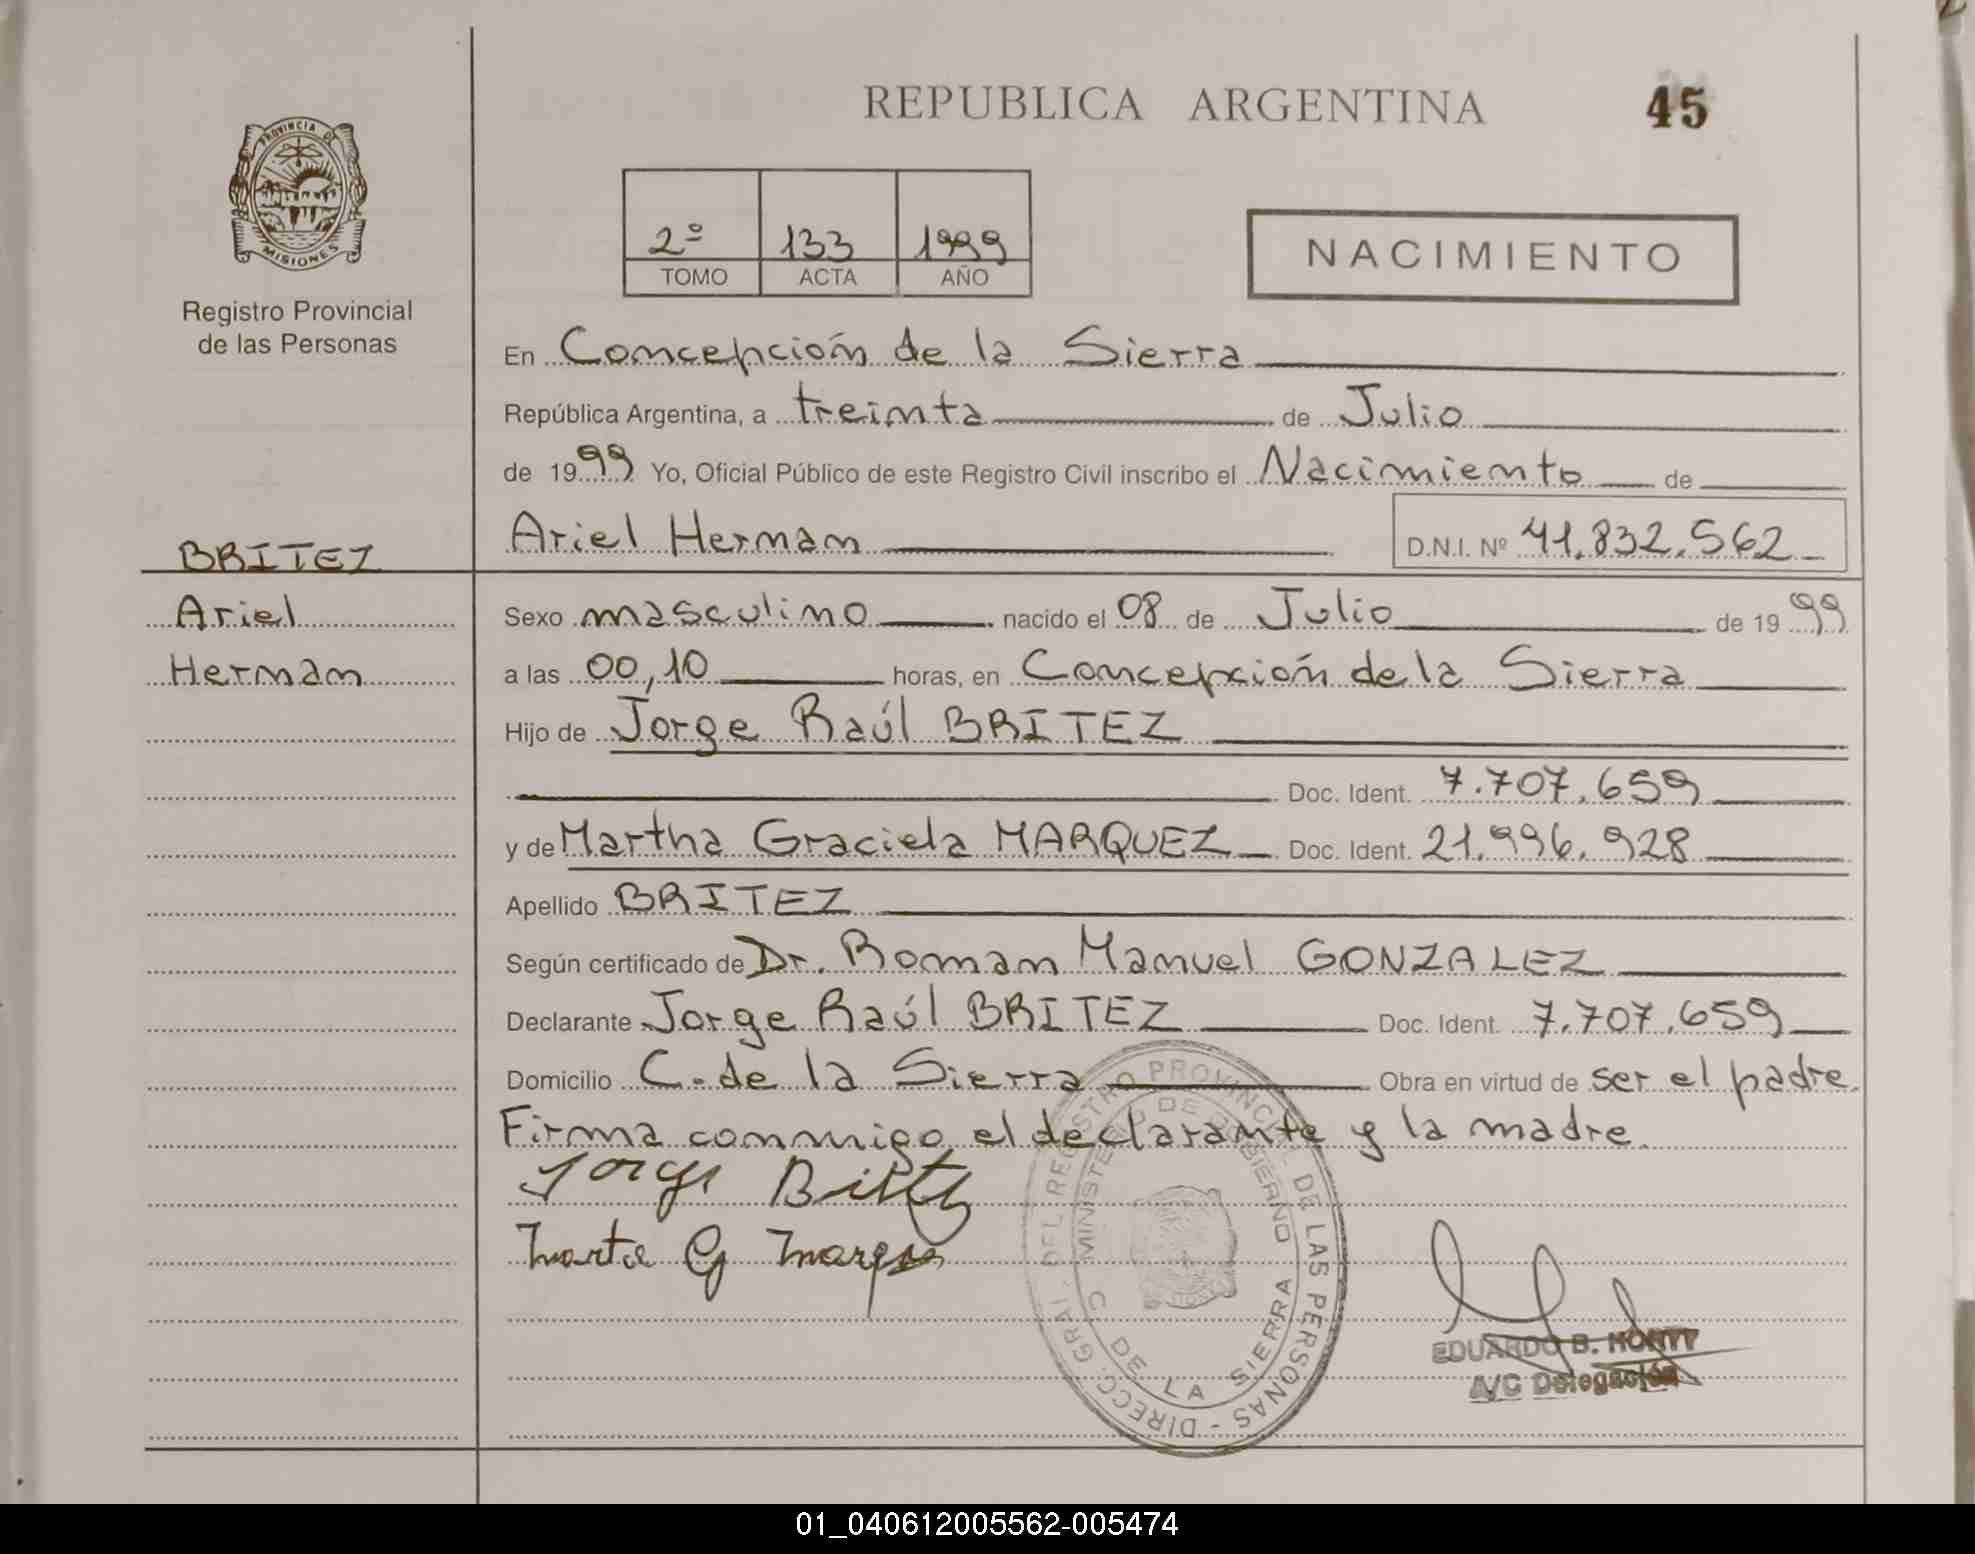 REPUBLICA ARGENTINA 45
PROVINCIA DE
MISIONES
Registro Provincial
de las Personas
2º 133 1999
TOMO ACTA AÑO
NACIMIENTO
En Concepción de la Sierra
República Argentina, a treinta de Julio
de 1999 Yo, Oficial Público de este Registro Civil inscribo el Nacimiento de
Ariel Hernan D.N.I. Nº 41.832.562
BRITEZ
Ariel
Hernan
Sexo masculino nacido el 08 de Julio de 1999
a las 00,10 horas, en Concepción de la Sierra
Hijo de Jorge Raúl BRITEZ
Doc. Ident. 7.707.659
y de Martha Graciela MARQUEZ Doc. Ident. 21.996.928
Apellido BRITEZ
Según certificado de Dr. Roman Manuel GONZALEZ
Declarante Jorge Raúl BRITEZ Doc. Ident. 7.707.659
Domicilio C. de la Sierra Obra en virtud de ser el padre.
Firma conmigo el declarante y la madre.
Jorge Britez
Marta G Marques
DIRECC. GRAL. DEL REGISTRO PROVINCIAL DE LAS PERSONAS -
MINISTERIO DE GOBIERNO
C DE LA SIERRA
EDUARDO B.
A/C Delegación
01_040612005562-005474